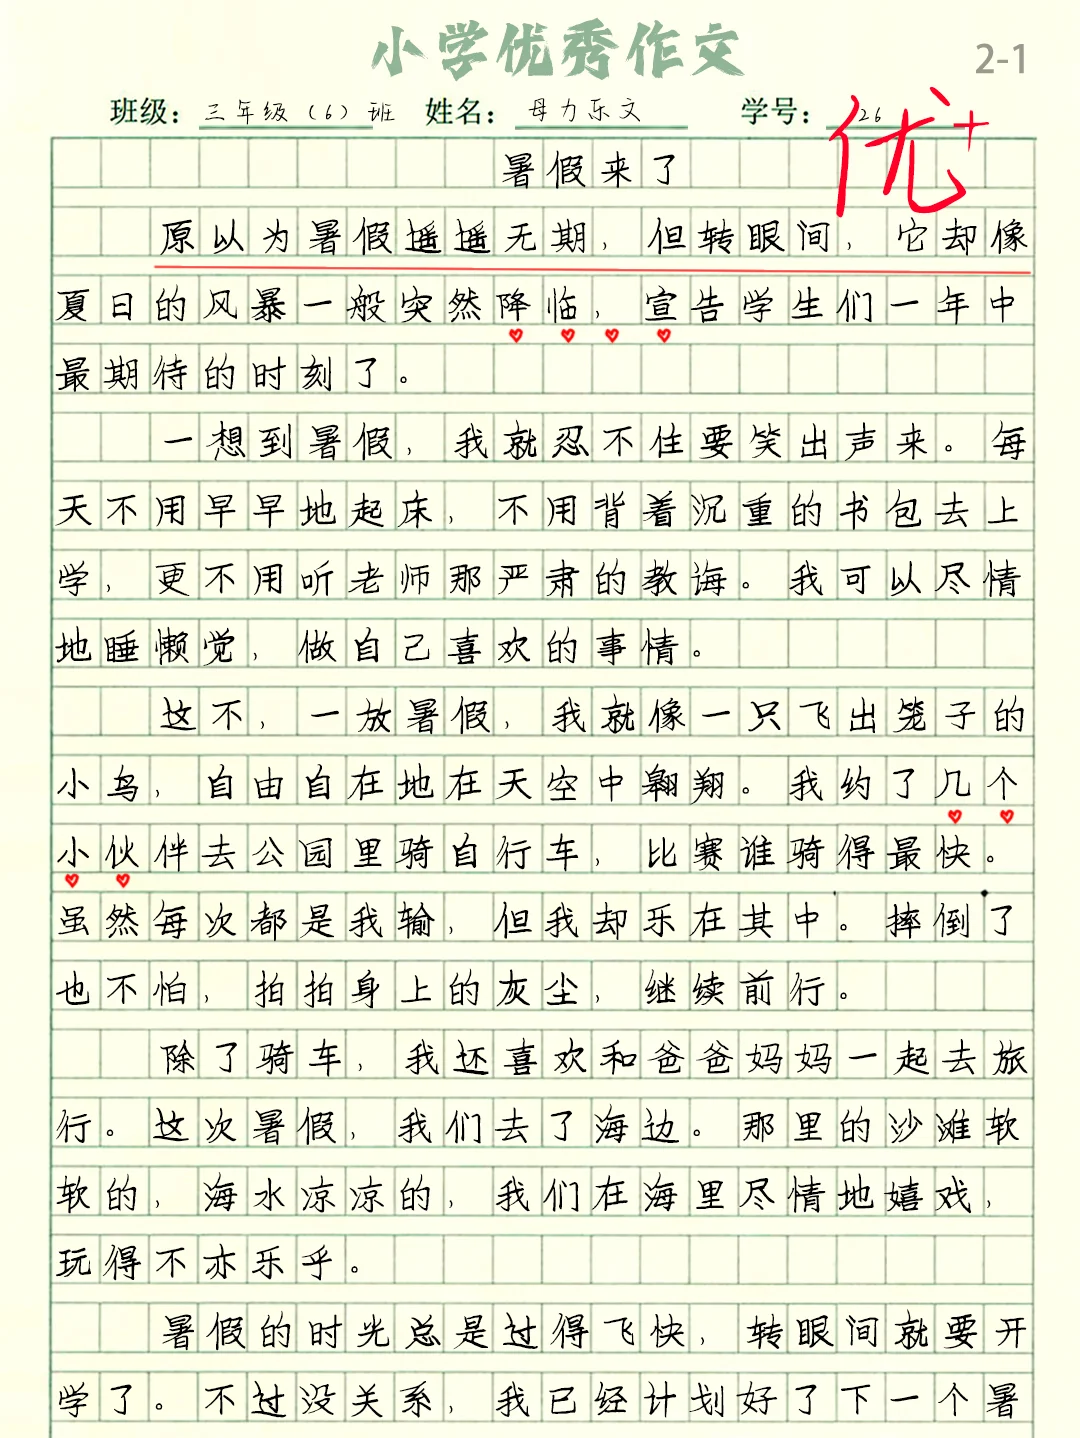 小学优秀作文
2-1
班级：三年级（6）班 姓名：母力乐文 学号：26
优+
暑假来了
原以为暑假遥遥无期，但转眼间，它却像
夏日的风暴一般突然降临，宣告学生们一年中
最期待的时刻了。
一想到暑假，我就忍不住要笑出声来。每
天不用早早地起床，不用背着沉重的书包去上
学，更不用听老师那严肃的教诲。我可以尽情
地睡懒觉，做自己喜欢的事情。
这不，一放暑假，我就像一只飞出笼子的
小鸟，自由自在地在天空中翱翔。我约了几个
小伙伴去公园里骑自行车，比赛谁骑得最快。
虽然每次都是我输，但我却乐在其中。摔倒了
也不怕，拍拍身上的灰尘，继续前行。
除了骑车，我还喜欢和爸爸妈妈一起去旅
行。这次暑假，我们去了海边。那里的沙滩软
软的，海水凉凉的，我们在海里尽情地嬉戏，
玩得不亦乐乎。
暑假的时光总是过得飞快，转眼间就要开
学了。不过没关系，我已经计划好了下一个暑